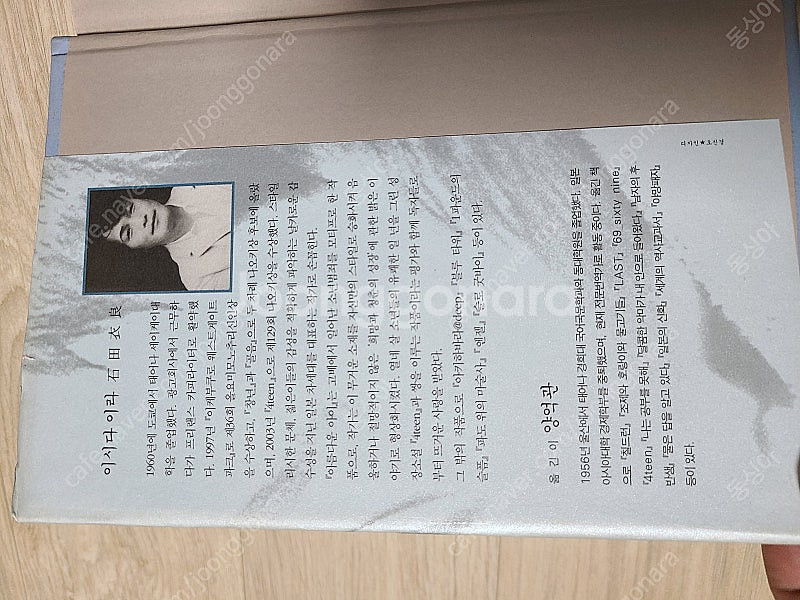 이시다 이라 石田衣良
1960년에 도쿄에서 태어나 세이케이대
학을 졸업했다. 광고회사에서 근무하
다가 프리랜스 카피라이터로 활약했
다. 1997년 『이케부쿠로 웨스트게이트
파크』로 제36회 올요미모노추리신인상
을 수상하고, 『장년』과 『골음』으로 두 차례 나오키상 후보에 올랐
으며, 2003년 『4teen』으로 제129회 나오키상을 수상했다. 스타일
리시한 문체, 젊은이들의 감성을 정확하게 파악하는 날카로운 감
수성을 지닌 일본 차세대를 대표하는 작가로 손꼽힌다.
『아름다운 아이』는 고베에서 일어난 소년범죄를 모티프로 한 작
품으로, 작가는 이 무거운 소재를 자신만의 스타일로 승화시켜 음
울하거나 절망적이지 않은 '희망과 청춘의 성장'에 관한 밝은 이
야기로 형상화시켰다. 열네 살 소년들의 유쾌한 일 년을 그린 성
장소설 『4teen』과 쌍을 이루는 작품이라는 평가와 함께 독자들로
부터 뜨거운 사랑을 받았다.
그 밖의 작품으로 『아키하바라@deep』 『블루 타워』 『1파운드의
슬픔』 『파도 위의 마술사』 『엔젤』 『슬로 굿바이』 등이 있다.
옮긴이 양억관
1956년 울산에서 태어나 경희대 국어국문학과와 동대학원을 졸업했다. 일본
아시아대학 경제학부를 중퇴했으며, 현재 전문번역가로 활동 중이다. 옮긴 책
으로 『칠드런』 『조제와 호랑이와 물고기들』 『LAST』 『69 sixty nine』
『4teen』 『나는 공부를 못해』 『달콤한 악마가 내 안으로 들어왔다』 『남자의 후
반생』 『물은 답을 알고 있다』 『일본의 신화』 『세계의 역사교과서』 『이방패자』
등이 있다.
디자인★오진경
cafe.naver.com/joonggonara
joonggonara
동싱아